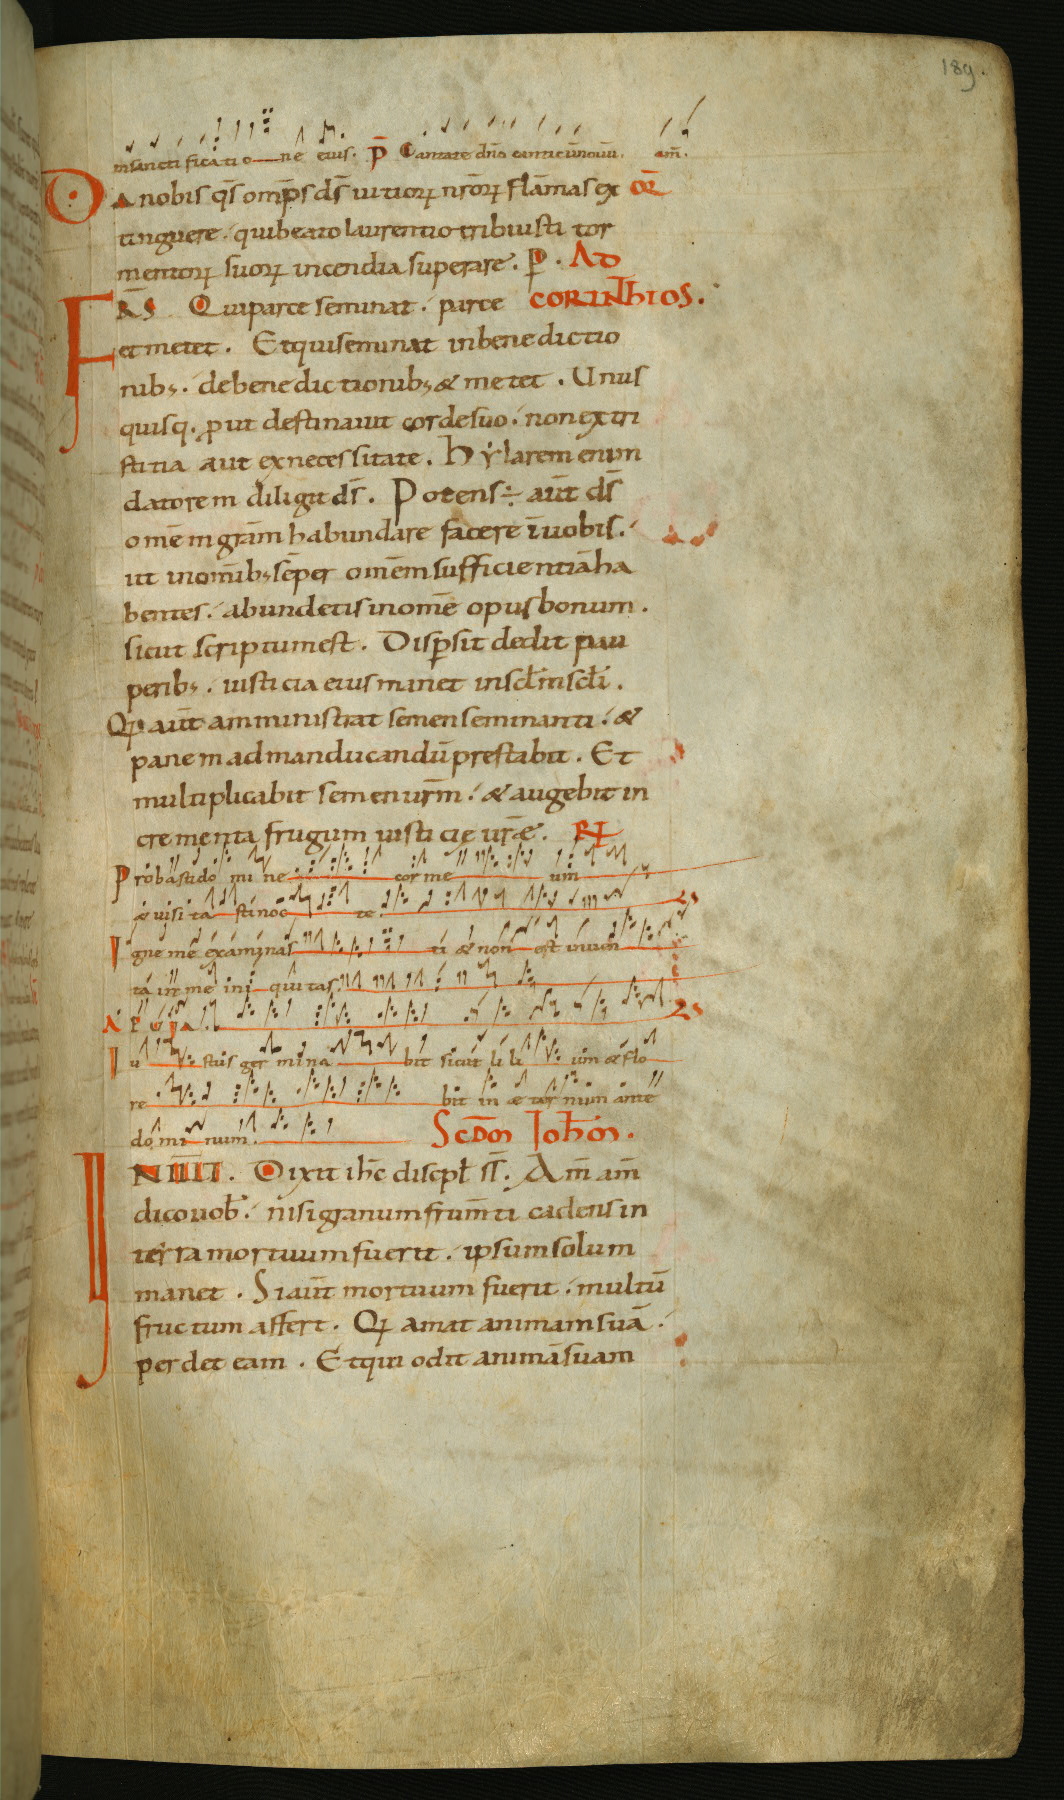 189.
insanctificatione eius. P̄ Cantate dño canticūnouū. am̄.
DA nobis q̄s omp̄s d̄s uitiorꝝ nr̄orꝝ flāmas ex OR̄
tinguere. quibeato laurentio tribuisti tor
mentorꝝ suorꝝ incendia superare. P̄. AD
FR̄S Quiparce seminat. parce CORINTHIOS.
et metet. Etquiseminat inbenedictio
nib;. debenedictionib; & metet. Unus
quisq. ꝓut destinauit cordesuo. nonextri
stitia aut exnecessitate. Hẏlarem enim
datorem diligit d̄s. Potens÷ aūt d̄s
omēm grām habundare facere īuobis.
ut inomīb; sēper omēm sufficientiāha
bentes. abundetis inomē opus bonum.
sicut scriptum est. Dispersit dedit pau
perib;. iusticia eius manet insclm̄ scli.
Qꝫ aūt amministrat semen seminanti. &
panem admanducandū prestabit. Et
multiplicabit semen ur̄m. & augebit in
crementa frugum iusticię ur̄æ. R̄
Probasti domine cor meum
& uisitasti nocte.
V Igne me examinasti & non est inuen
ta in me iniquitas.
ALELUIA.
V Iustus germinabit sicut lilium & flo
rebit in æternum ante
dominum. SCDM IOHEM.
IN ILLT. Dixit ih̄c discipl̄ s̄s. Am̄ am̄
dicouob̄. nisigranumfrum̄ti cadens in
terra mortuumfuerit. ipsumsolum
manet. Siaūt mortuum fuerit. multū
fructum affert. Qꝫ amat animamsuā.
perdet eam. Etqui odit animāsuam